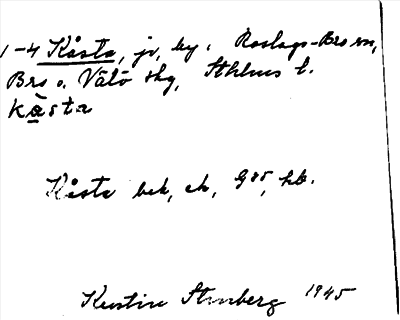 1-4 Kåsta, jr, by, Roslags-Bro sn,
Bro o. Vätö skg, Sthlms l.
kàsta
Kåsta bek, ek, 985, hb.
Kerstin Stenberg 1945